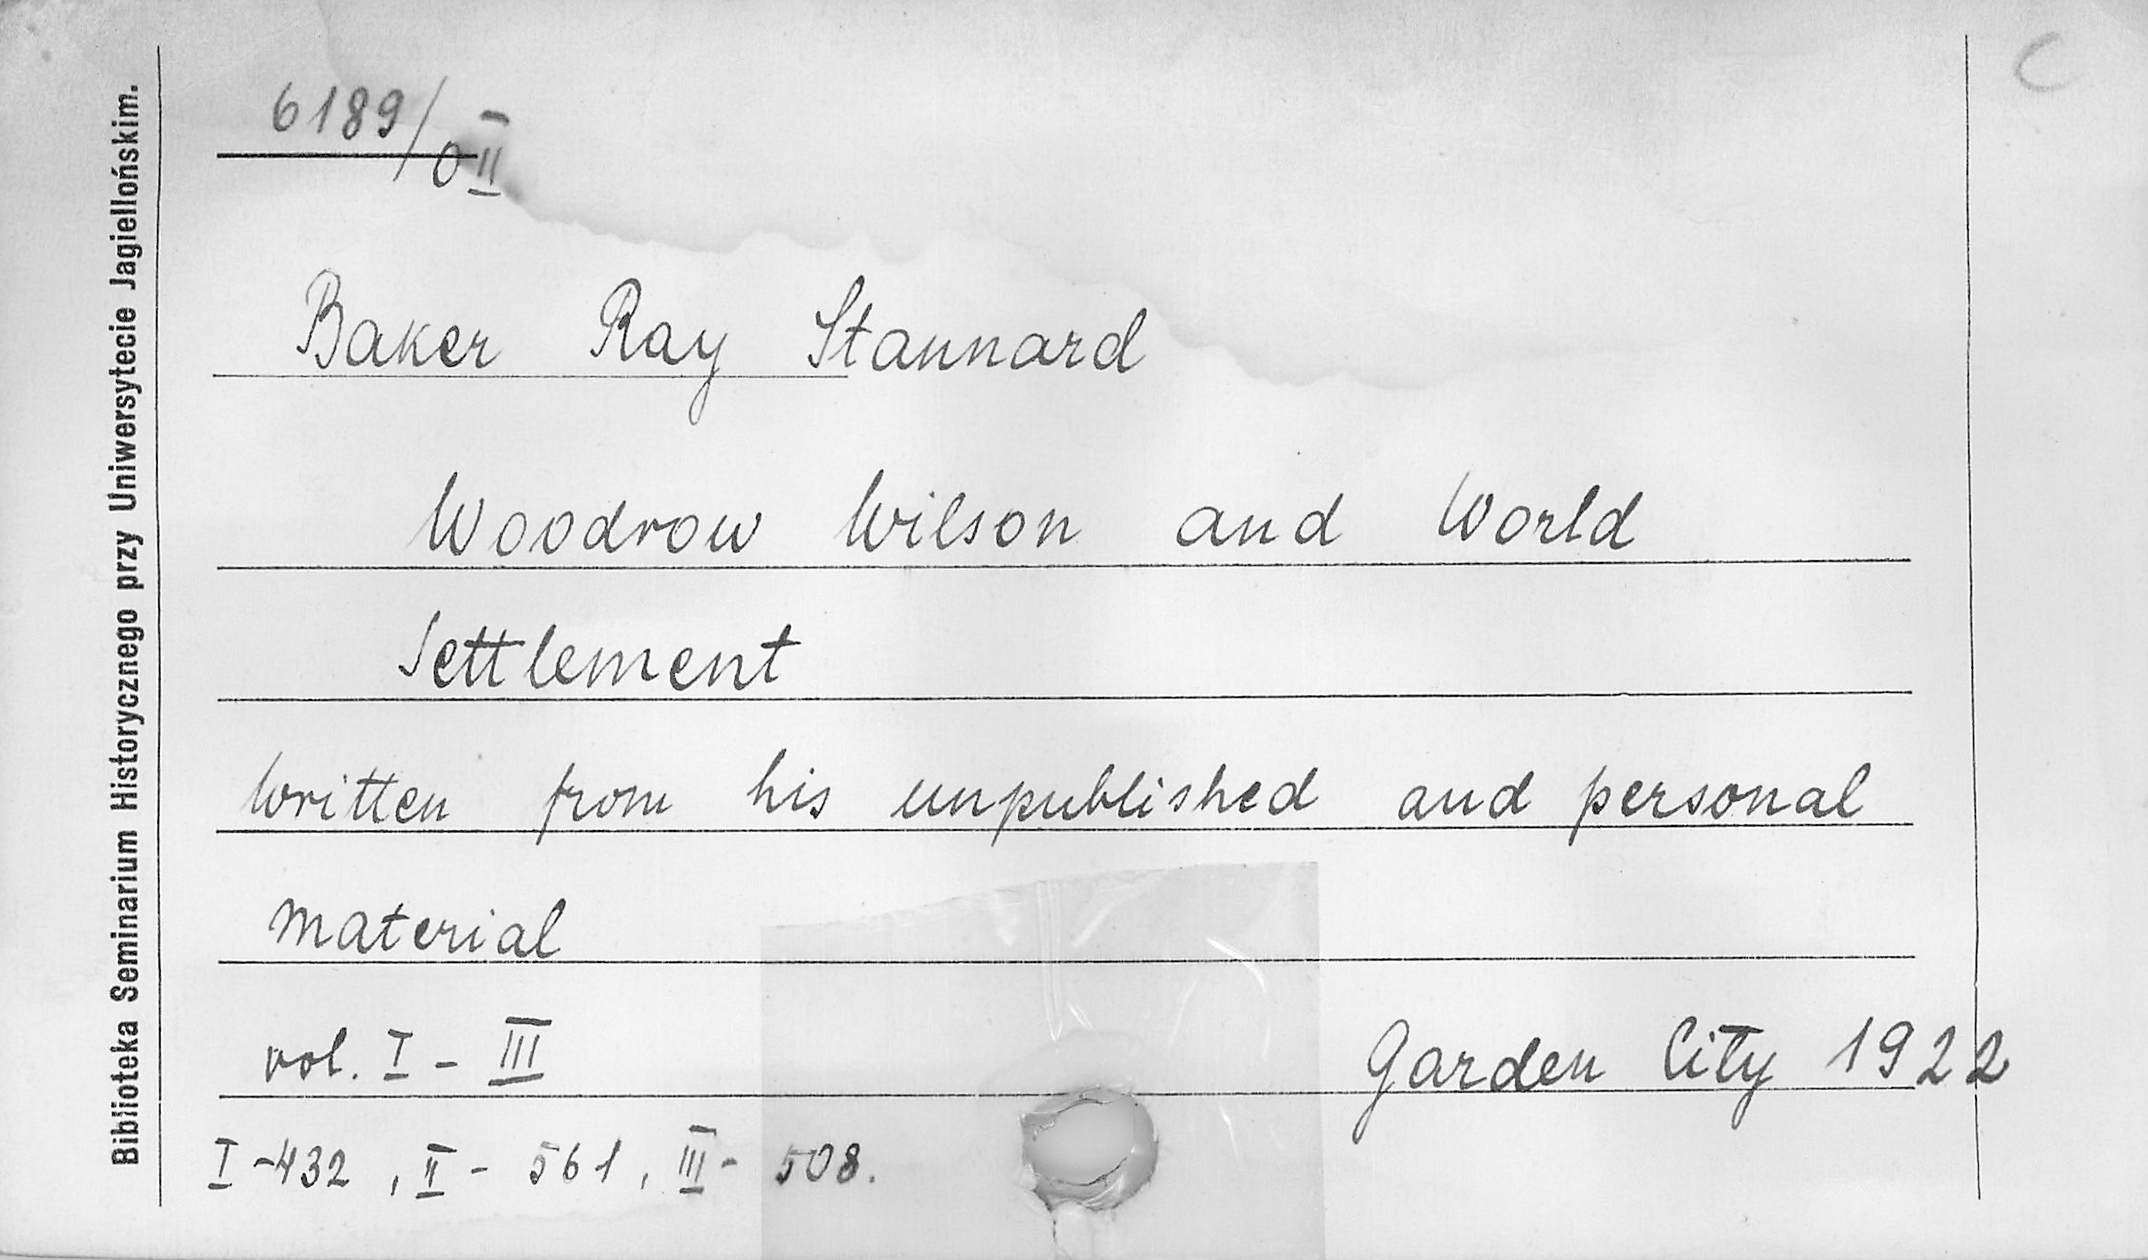 C
6189/0 II
Baker Ray Stannard
Woodrow Wilson and World
Settlement
written from his unpublished and personal
material
vol. I - III Garden City 1922
I - 432, II - 561, III - 508.
Biblioteka Seminarium Historycznego przy Uniwersytecie Jagiellońskim.